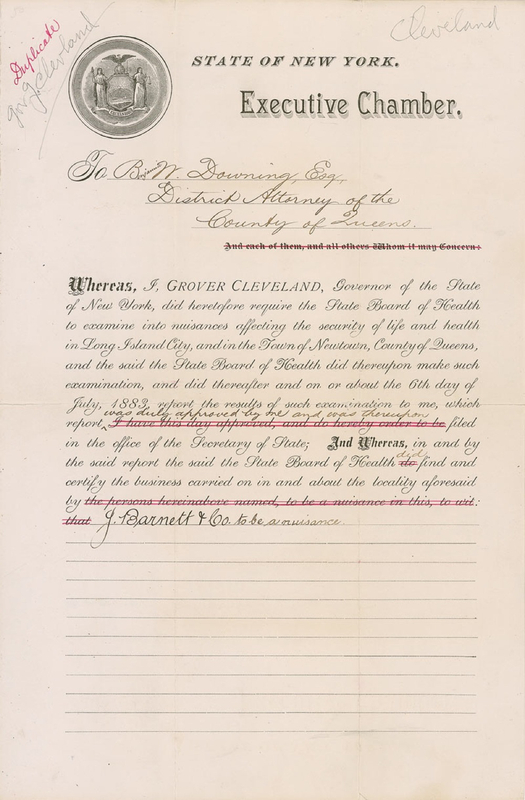 Duplicate
Gov. G. Cleveland
Cleveland
STATE OF NEW YORK.
Executive Chamber.
To Benj. W. Downing, Esq.,
District Attorney of the
County of Queens.
And each of them, and all others Whom it may Concern:
Whereas, I, GROVER CLEVELAND, Governor of the State
of New York, did heretofore require the State Board of Health
to examine into nuisances affecting the security of life and health
in Long Island City, and in the Town of Newtown, County of Queens,
and the said the State Board of Health did thereupon make such
examination, and did thereafter and on or about the 6th day of
July, 1883, report the results of such examination to me, which
was duly approved by me and was thereupon
report, I have this day approved, and do hereby order to be filed
in the office of the Secretary of State; And Whereas, in and by
did
the said report the said the State Board of Health do find and
certify the business carried on in and about the locality aforesaid
by the persons hereinabove named, to be a nuisance in this, to wit:
that J. Barnett & Co. to be a nuisance